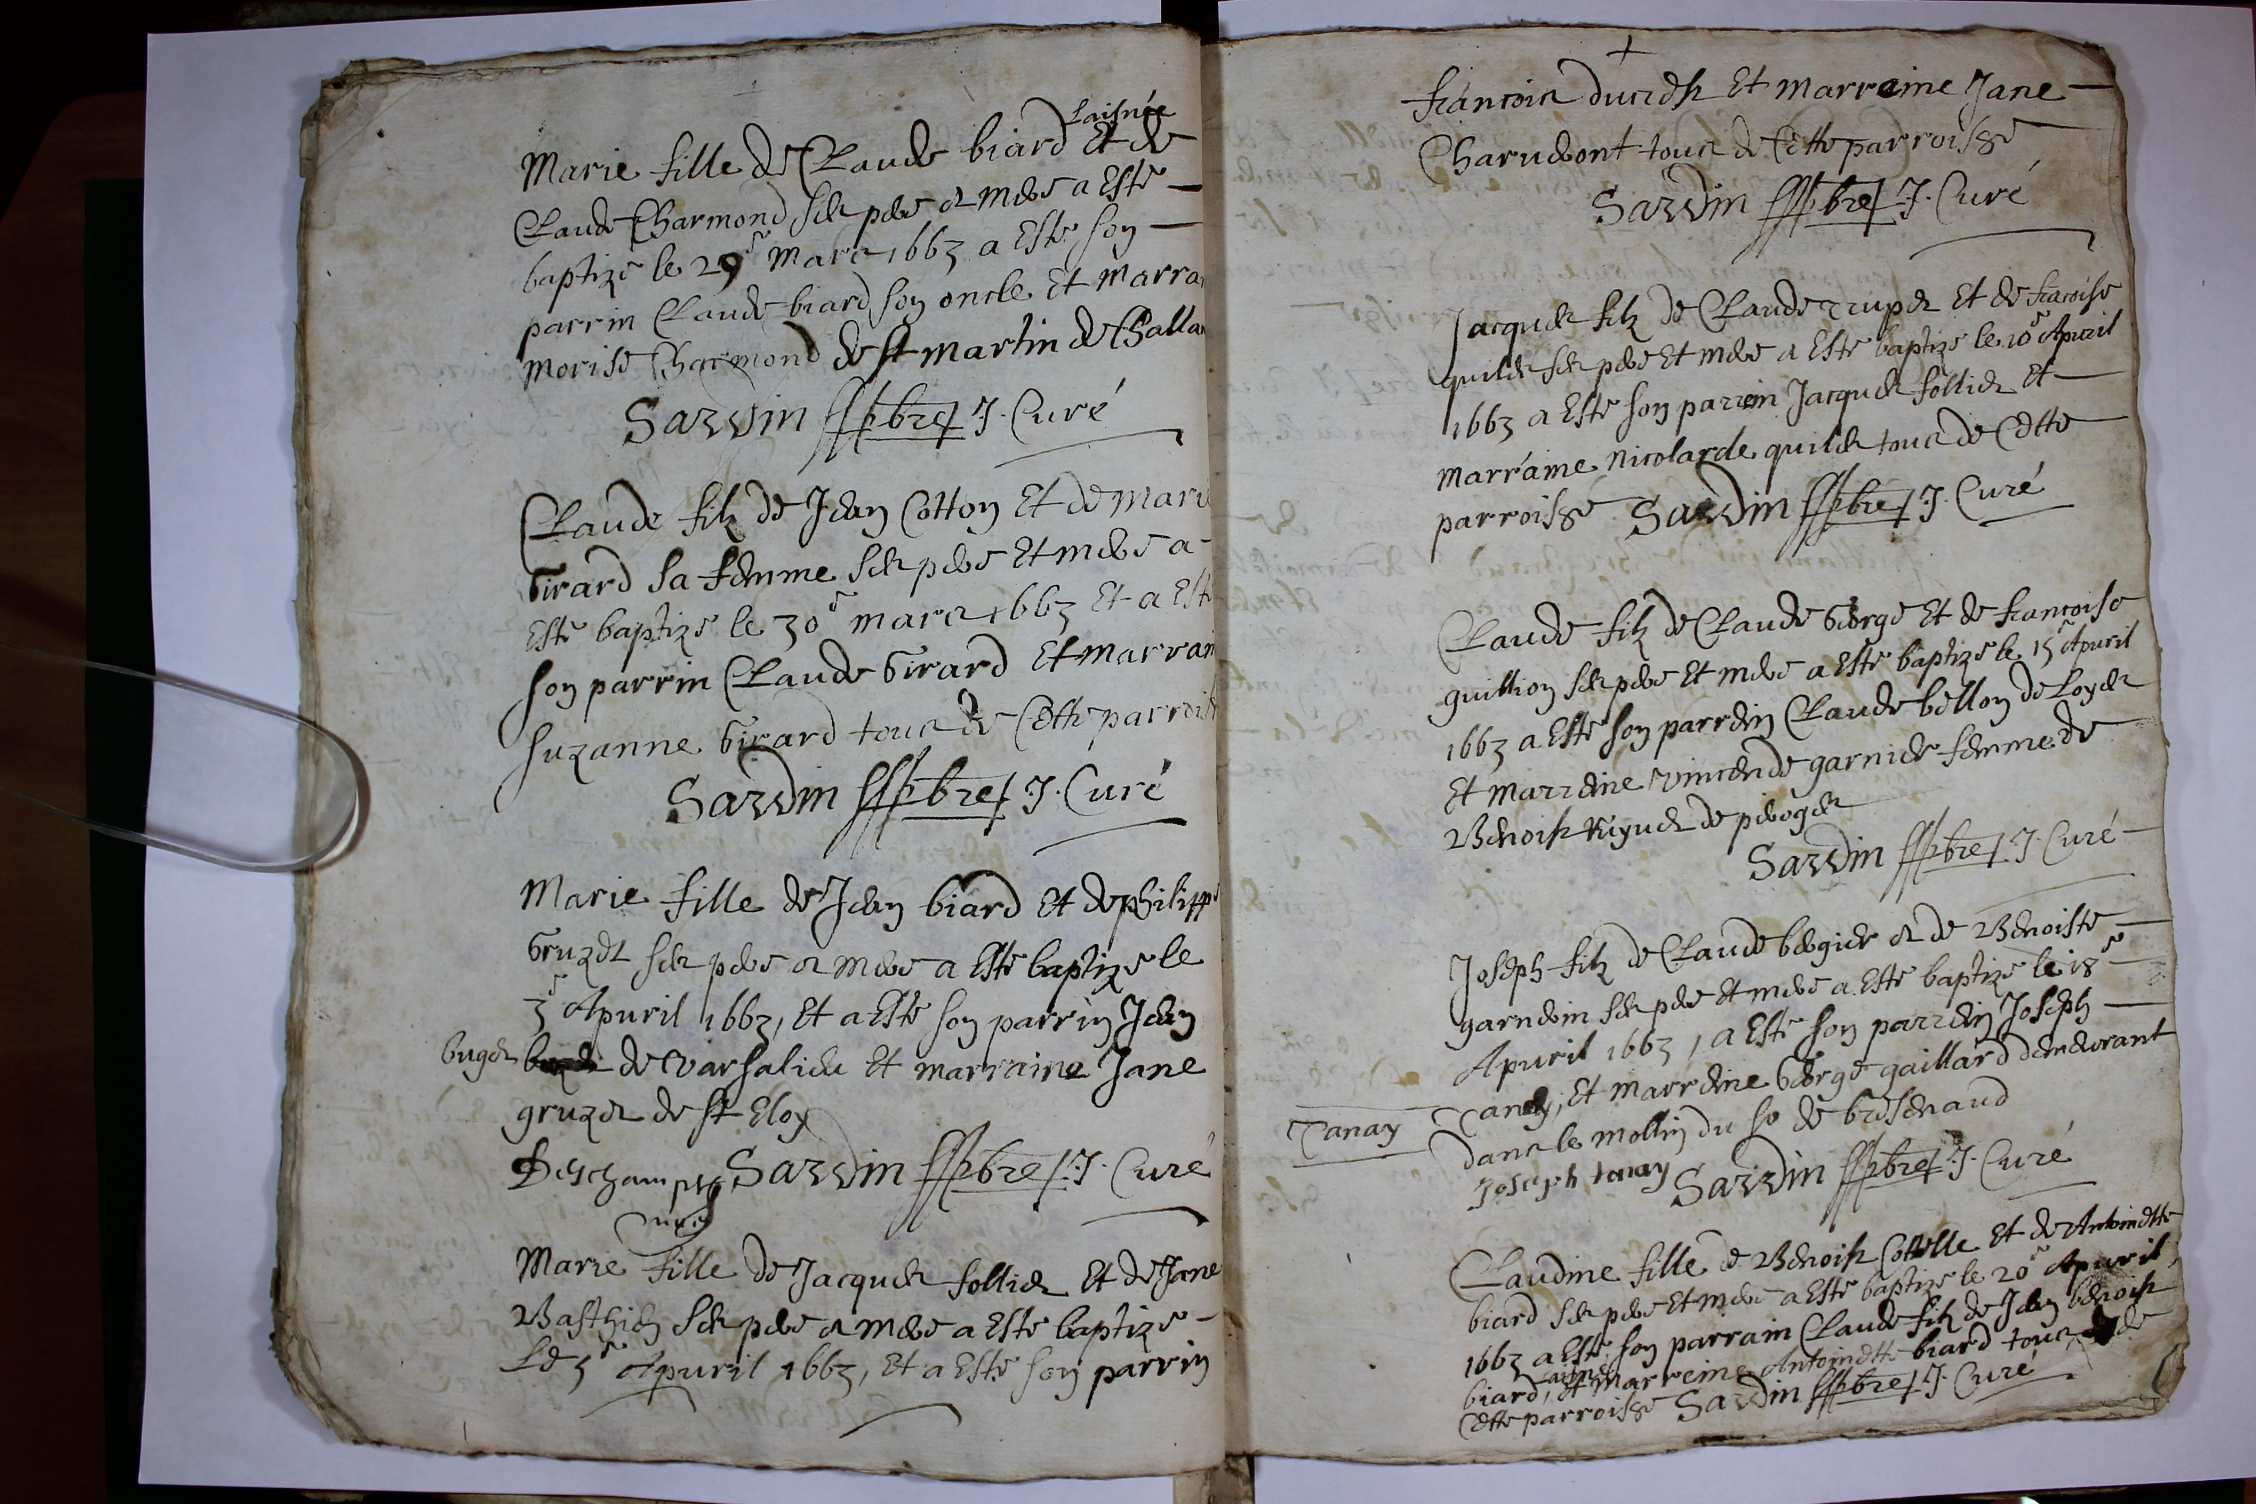 Laisnée
Marie fille de Claude biard Et de
Claude Charmond ses pere & mere a Esté
baptizé le 29e Mars 1663 a Esté son
parrin Claude biard son oncle Et Marra
Morise Charmond de st martin de Challa
Sardin pbre J. Curé
Claude filz de Jean Cotton Et de Marie
Girard sa femme ses pere Et mere a
Esté baptizé le 30e mars 1663 Et a Esté
son parrin Claude Girard Et Marrain
suzanne Girard tous de Cette parrois
Sardin pbre J. Curé
Marie fille de Jean biard Et de philippe
Gruzet ses pere & mere a Esté baptize le
3e Apuril 1663, Et a Esté son parrin Jean
buges de Varsalieu Et marraine Jane
gruzet de st Eloy
Deschamps Sardin pbre J. Curé
Marie fille de Jacques follies Et de Jane
Basthien ses pere & mere a Esté baptizé
Le 5e Apuril 1663, Et a Esté son parrin
francois Et marreine Jane
Charudont tous de Cette parroisse
Sardin pbre J. Curé
Jacques filz de Claude Trupes Et de fracoise
quiles ses pere Et mere a Esté baptizé le 10e Apuril
1663 a Esté son parrein Jacques follies Et
Marráine nicolarde quiles tous de Cette
parroisse Sardin pbre J. Curé
Claude filz de Claude George Et de francoise
guillion ses pere Et mere a Esté baptizé le 15e Apuril
1663 a Esté son parrein Claude bellon de Loyes
Et Marreine Vincende garnier femme de
Benoist de peroges
Sardin pbre J. Curé
Joseph filz de Claude bergier & de Benoiste
garndein ses pere Et mere a Esté baptizé le 18e
Apuril 1663, a Esté son parrein Joseph
Tanay Tanay, Et marreine George gaillard demeurant
dans le mollin du sr de bresenaud
Joseph tanay Sardin pbre J. Curé
Claudine fille de Benoist Cottelle Et de Antoinette
biard ses pere Et mere a Esté baptizé le 20e Apuril
1663 a Esté son parrain Claude filz de Jean benoist
biard, Et Marreine Antoinette biard tous de
Cette parroisse Sardin pbre J. Curé